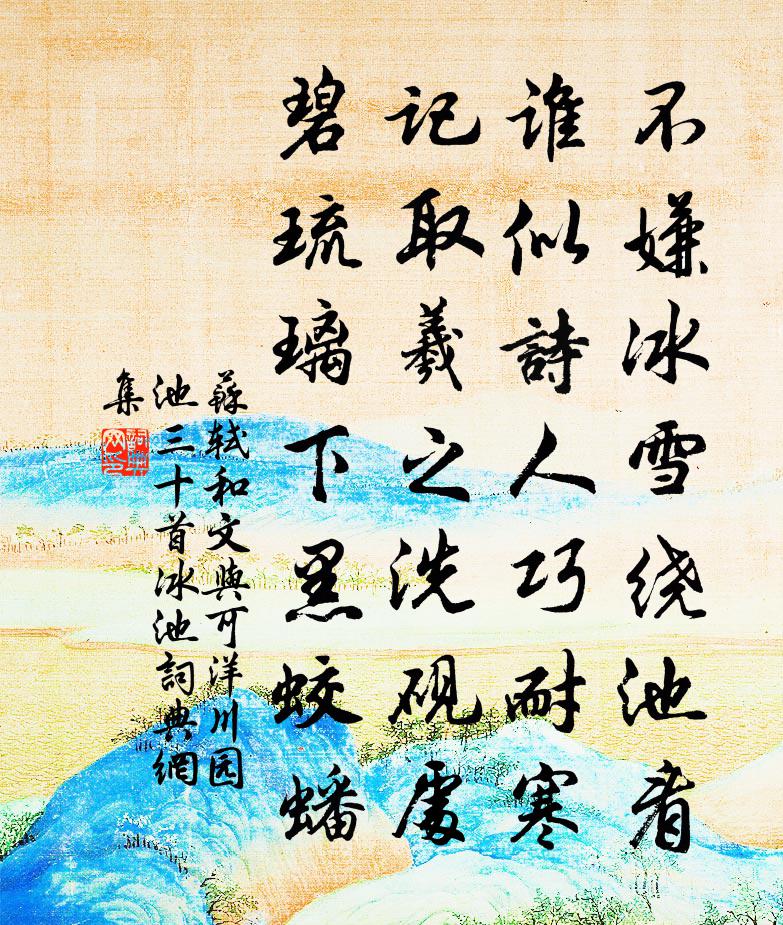 不嫌冰雪绕池看
谁似詩人巧耐寒
记取羲之洗硯處
碧琉璃下黑蛟蟠
蘇軾和文與可洋川园
池三十首冰池詞典網
集